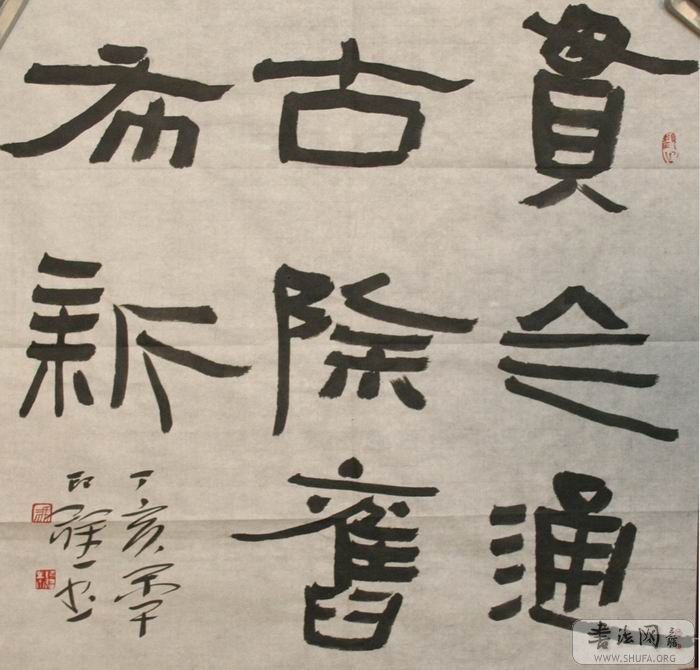 貫今通
古除舊
布新
丁亥
書法网
WWW.SHUFA.ORG